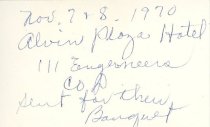 Nov. 7 & 8. 1970
Alvin Plaza Hotel
111 Engerneers
Co. A
sent for their
Banquet